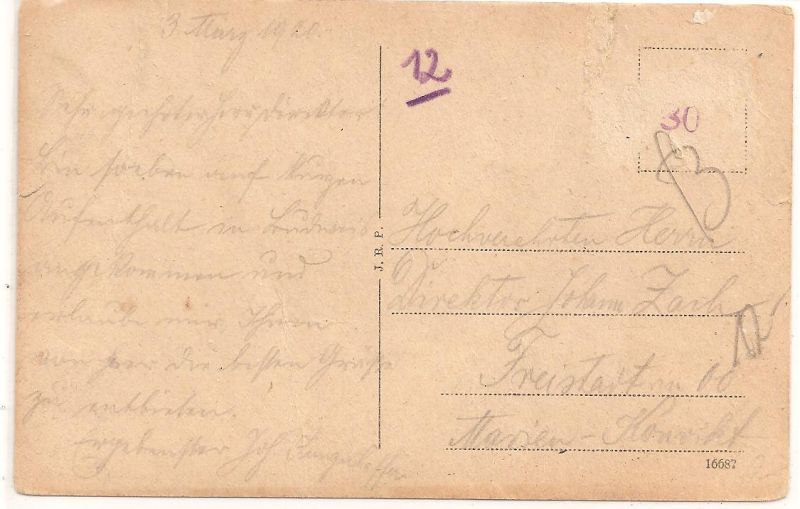 3. März 1920.
Sehr geehrter Herr Direktor!
Bin soeben auf kurzen
Aufenthalt in Budweis
angekommen und
erlaube mir, Ihnen
von hier die besten Grüße
zu entbieten.
Ergebenster Joh.
12
30
83
J. R. P.
Hochverehrten Herrn
Direktor Johann Zach
Freistadt OÖ
Marien-Konvikt
12
16687